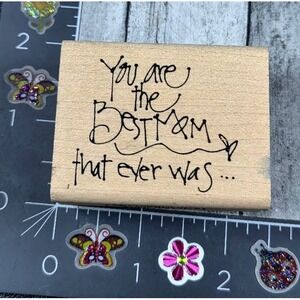 You are
the
BEST MOM
that ever was...
2
1
0
0
1
2